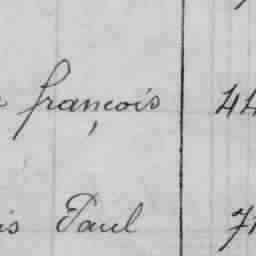 françois 44
is Paul 71